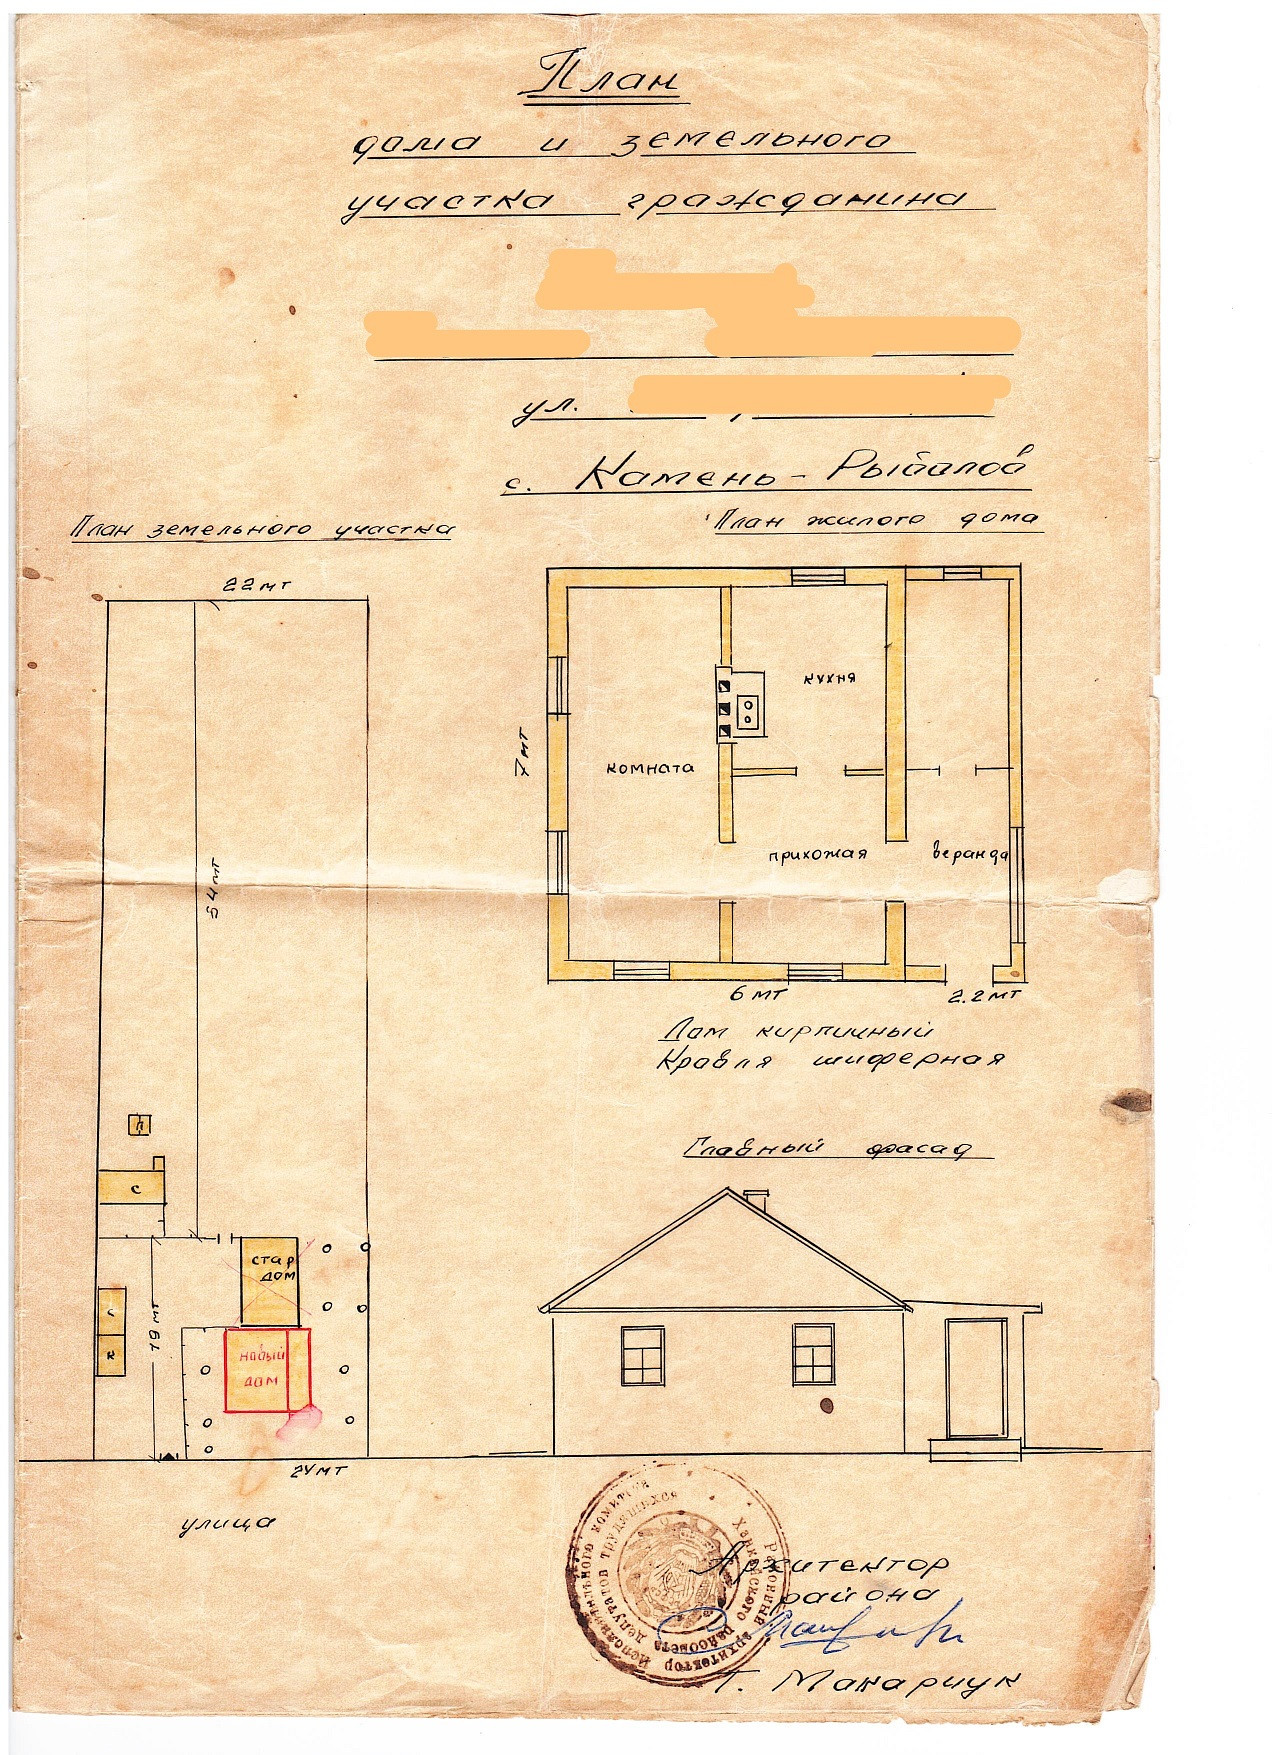 План
дома и земельного
участка гражданина
ул.
с. Камень-Рыболов
План земельного участка
План жилого дома
22 мт
54 мт
П
С
стар
дом
новый
дом
С
К
19 мт
24 мт
улица
7 мт
кухня
комната
прихожая
веранда
6 мт
2.2 мт
Дом кирпичный
Кровля шиферная
Главный фасад
Исполнительного комитета
депутатов трудящихся
Ханкайского райсовета
Районный архитектор
Архитектор
района
Г. Макарчук